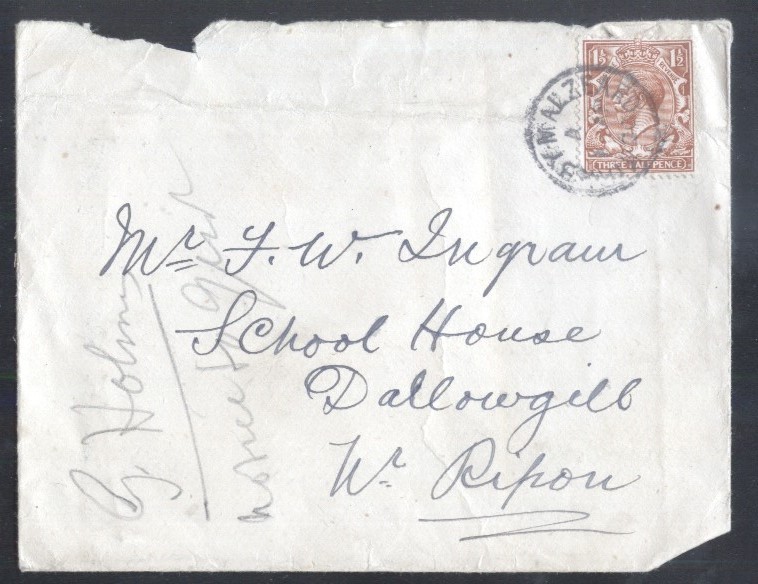 1½ 1½
THREE HALFPENCE
KIRKBY MALZEARD
Mr F. W. Ingram
School House
Dallowgill
Nr Ripon
G. Holm